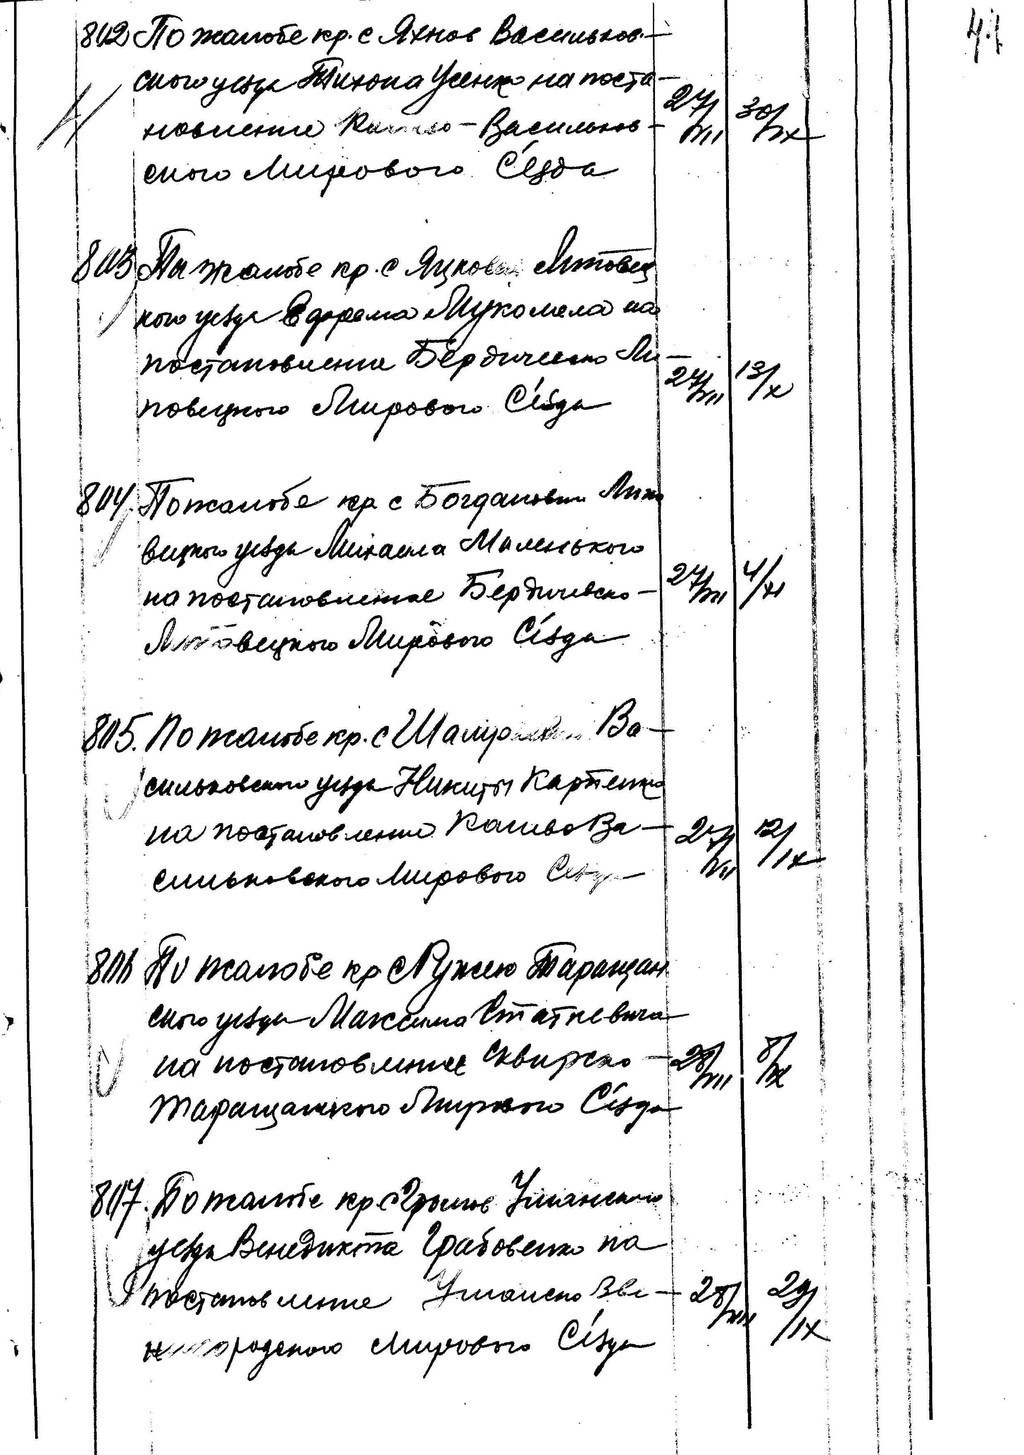 41
802 По жалобе кр. с Яхнов Васильков-
ского уезда Тихона Усенко на поста-
новление Киево-Васильков-
ского Мирового Съезда 27/VIII 30/IX
803 По жалобе кр. с Яцковец Липовец
кого уезда Ефрема Мукомела на
постановление Бердичевско Ли-
повецкого Мирового Съезда 27/VIII 13/X
804. По жалобе кр с Богдановки Липо
вецкого уезда Михаила Маленького
на постановление Бердичевско- 27/VIII 4/XI
Липовецкого Мирового Съезда
805. По жалобе кр. с Ва-
сильковского уезда Никиты Карпенко
на постановление Киево Ва- 27/VIII 12/IX
сильковского Мирового Съезда
806 По жалобе кр с Ружек Таращан
ского уезда Максима Статкевича
на постановление Сквирско- 28/VIII 8/IX
Таращанского Мирового Съезда
807. По жалобе кр. с Уманского
уезда Венедикта Грабовенко на
постановление Уманско Зве- 28/VIII 29/IX
нигородского Мирового Съезда